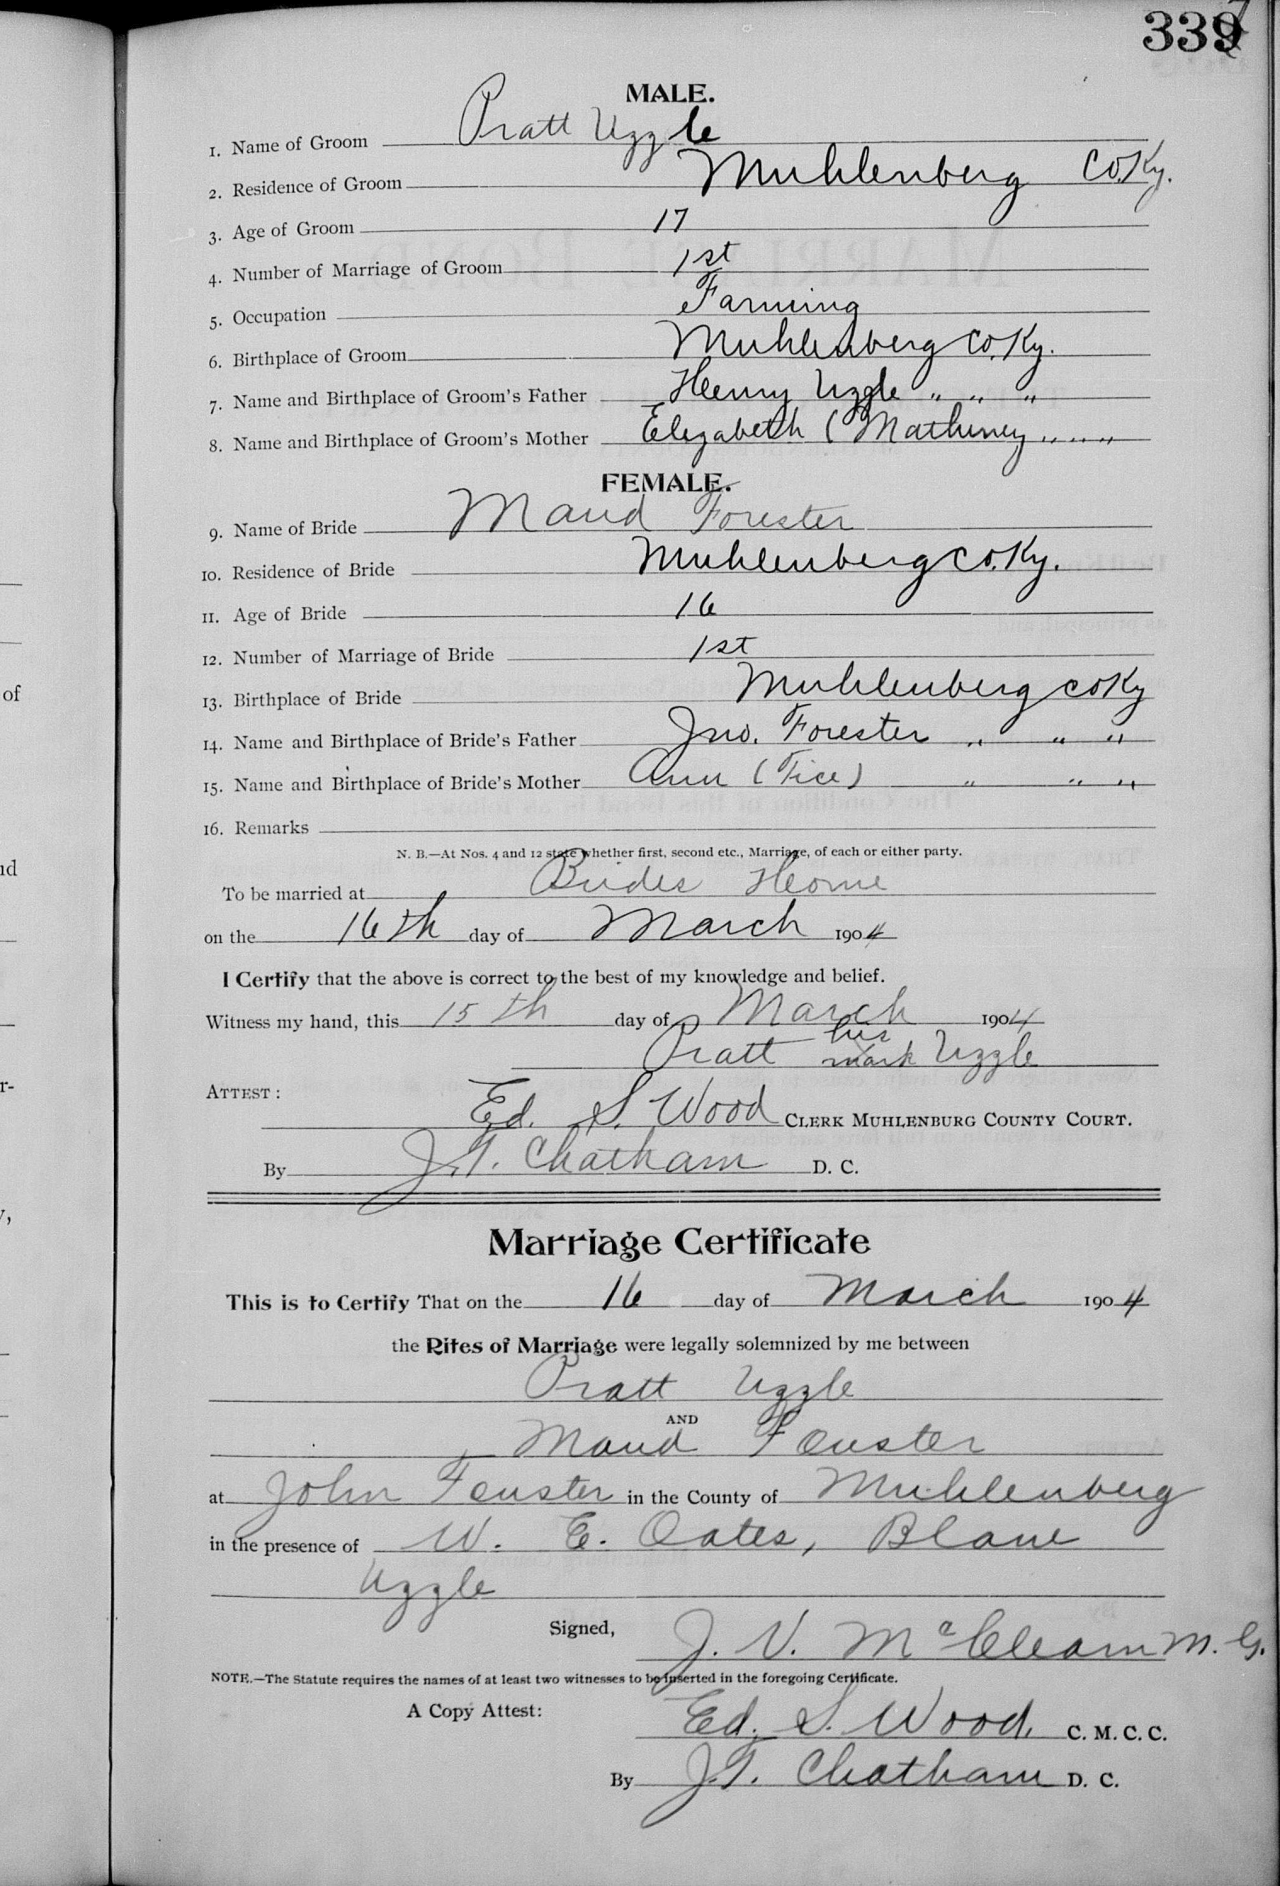 339
MALE.
1. Name of Groom Pratt Uzzle
2. Residence of Groom Muhlenberg Co. Ky.
3. Age of Groom 17
4. Number of Marriage of Groom 1st
5. Occupation Farming
6. Birthplace of Groom Muhlenberg Co. Ky.
7. Name and Birthplace of Groom's Father Henry Uzzle " " "
8. Name and Birthplace of Groom's Mother Elizabeth (Matheney " " "
FEMALE.
9. Name of Bride Maud Forester
10. Residence of Bride Muhlenberg Co. Ky.
11. Age of Bride 16
12. Number of Marriage of Bride 1st
13. Birthplace of Bride Muhlenberg Co Ky
14. Name and Birthplace of Bride's Father Jno. Forester " " "
15. Name and Birthplace of Bride's Mother Ann (Tice) " " "
16. Remarks
N. B.—At Nos. 4 and 12 state whether first, second etc., Marriage, of each or either party.
To be married at Brides Home
on the 16th day of March 1904
I Certify that the above is correct to the best of my knowledge and belief.
Witness my hand, this 15th day of March 1904
his
Pratt x Uzzle
mark
ATTEST:
Ed. S. Wood CLERK MUHLENBURG COUNTY COURT.
By J. T. Chatham D. C.
Marriage Certificate
This is to Certify That on the 16 day of March 1904
the Rites of Marriage were legally solemnized by me between
Pratt Uzzle
AND
Maud Fouster
at John Fouster in the County of Muhlenberg
in the presence of W. E. Oates, Blane
Uzzle
Signed, J. V. McCleam M. G.
NOTE.—The Statute requires the names of at least two witnesses to be inserted in the foregoing Certificate.
A Copy Attest: Ed. S. Wood, C. M. C. C.
By J. T. Chatham D. C.